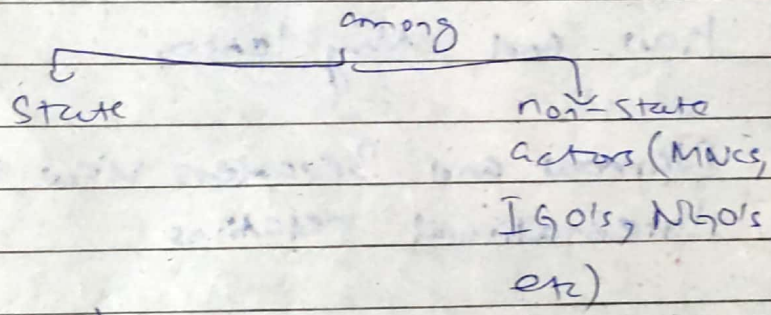 among
State
non-state
actors (MNCs,
IGO's, NGO's
etc)